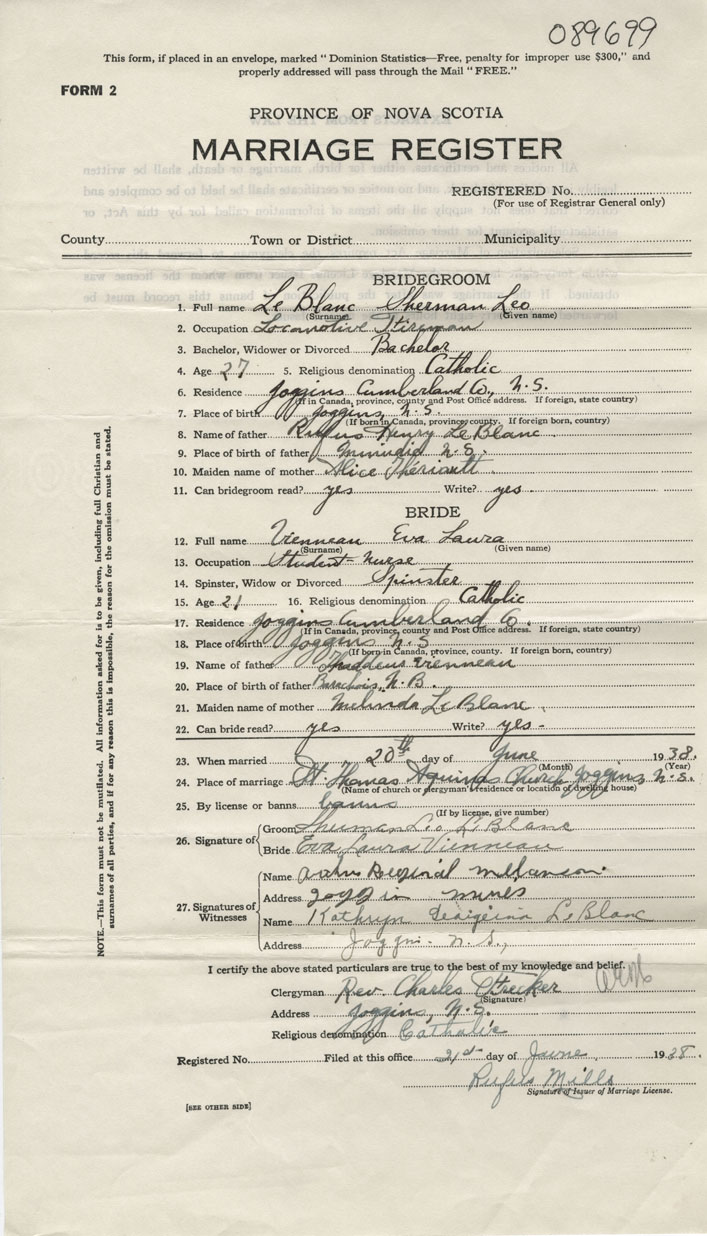 089699
This form, if placed in an envelope, marked "Dominion Statistics—Free, penalty for improper use $300," and
properly addressed will pass through the Mail "FREE."
FORM 2
PROVINCE OF NOVA SCOTIA
MARRIAGE REGISTER
REGISTERED No.
(For use of Registrar General only)
County Town or District Municipality
BRIDEGROOM
1. Full name Le Blanc Sherman Leo
(Surname) (Given name)
2. Occupation Locomotive Fireman
3. Bachelor, Widower or Divorced Bachelor
4. Age 27 5. Religious denomination Catholic
6. Residence Joggins Cumberland Co., N.S.
(If in Canada, province, county and Post Office address. If foreign, state country)
7. Place of birth Joggins, N.S.
(If born in Canada, province, county. If foreign born, country)
8. Name of father Rufus Henry Le Blanc
9. Place of birth of father Minudie N.S.
10. Maiden name of mother Alice Thériault
11. Can bridegroom read? yes Write? yes
BRIDE
12. Full name Vienneau Eva Laura
(Surname) (Given name)
13. Occupation Student nurse
14. Spinster, Widow or Divorced Spinster
15. Age 21 16. Religious denomination Catholic
17. Residence Joggins Cumberland Co.
(If in Canada, province, county and Post Office address. If foreign, state country)
18. Place of birth Joggins N.S
(If born in Canada, province, county. If foreign born, country)
19. Name of father Thaddeus Vienneau
20. Place of birth of father Barachois, N.B.
21. Maiden name of mother Melinda Le Blanc
22. Can bride read? yes Write? yes
23. When married 20th day of June 1938.
(Month) (Year)
24. Place of marriage St. Thomas Aquinas Church Joggins, N.S.
(Name of church or clergyman's residence or location of dwelling house)
25. By license or banns banns
(If by license, give number)
26. Signature of Groom Sherman Leo LeBlanc
Bride Eva Laura Vienneau
27. Signatures of Witnesses
Name Reginal Melanson
Address Joggin mines
Name Kathryn LeBlanc
Address Joggin N.S.,
I certify the above stated particulars are true to the best of my knowledge and belief.
Clergyman Rev. Charles
(Signature)
Address Joggins, N.S.
Religious denomination Catholic
Registered No. Filed at this office 21st day of June, 1938.
Rufus Mills
Signature of Issuer of Marriage License.
[SEE OTHER SIDE]
NOTE.—This form must not be mutilated. All information asked for is to be given, including full Christian and
surnames of all parties, and if for any reason this is impossible, the reason for the omission must be stated.